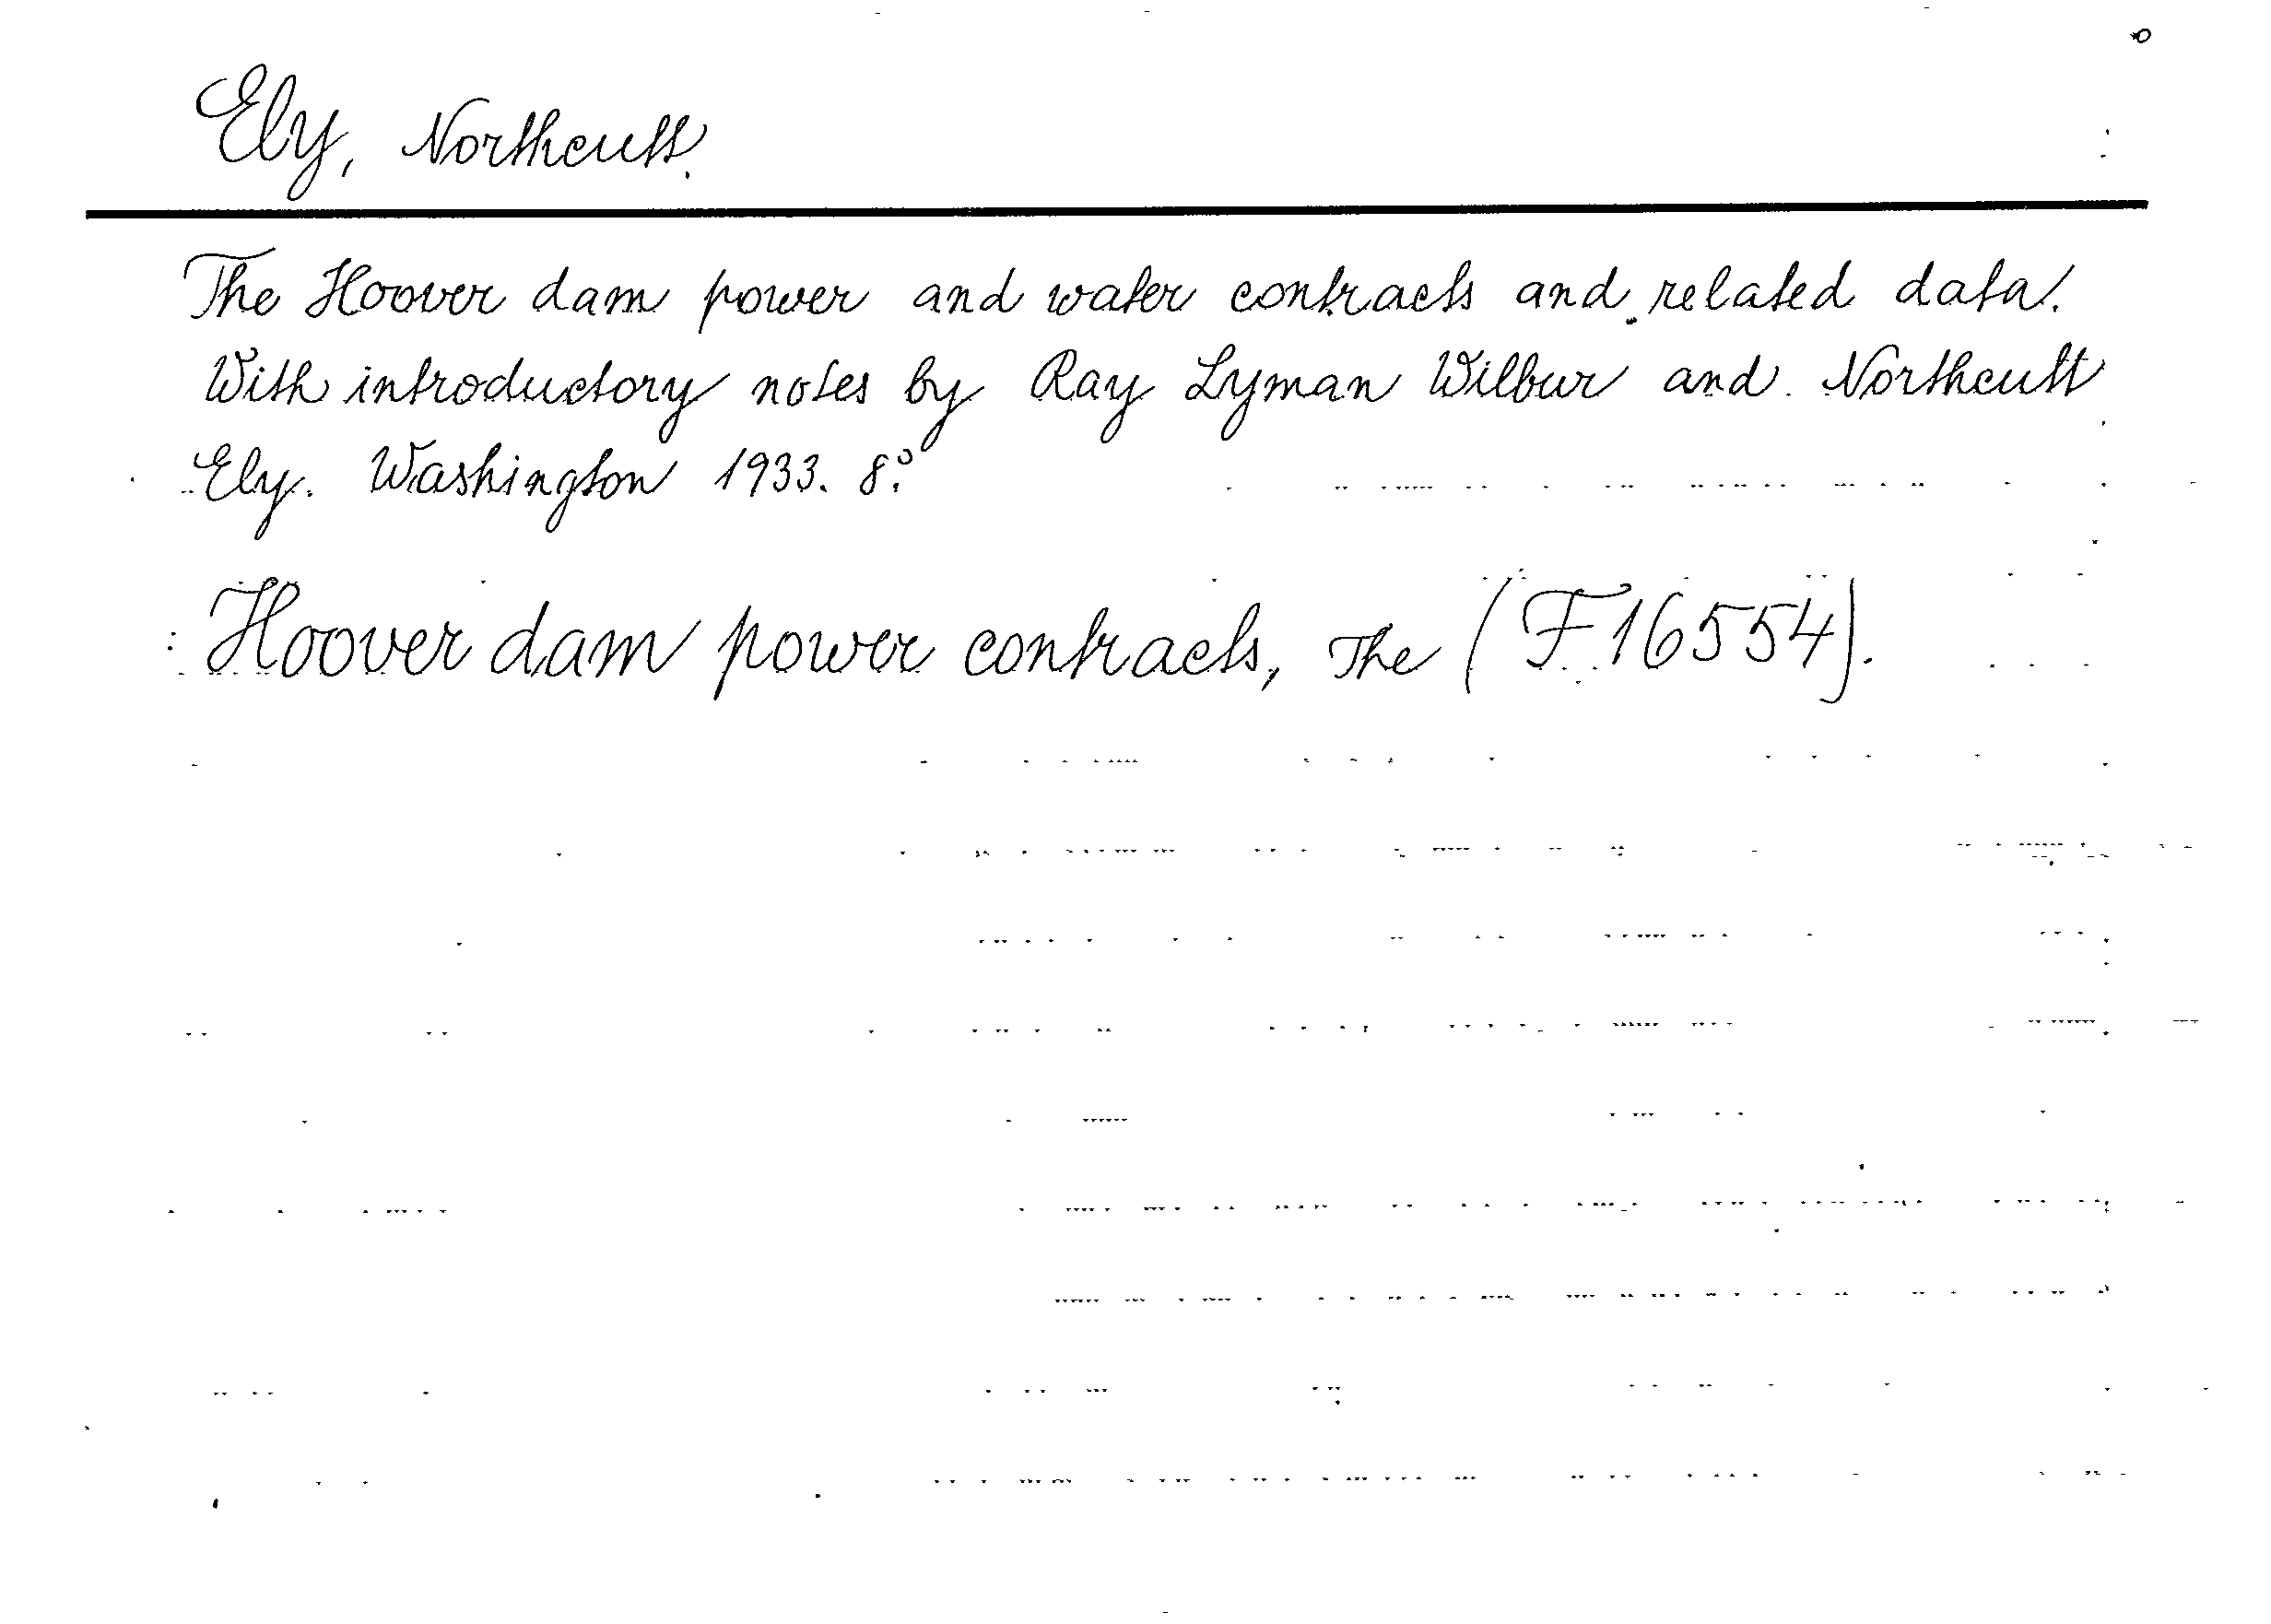 Ely, Northcutt.
The Hoover dam power and water contracts and related data.
With introductory notes by Ray Lyman Wilbur and Northcutt
Ely. Washington 1933. 8°.
Hoover dam power contracts, The (F 16554).